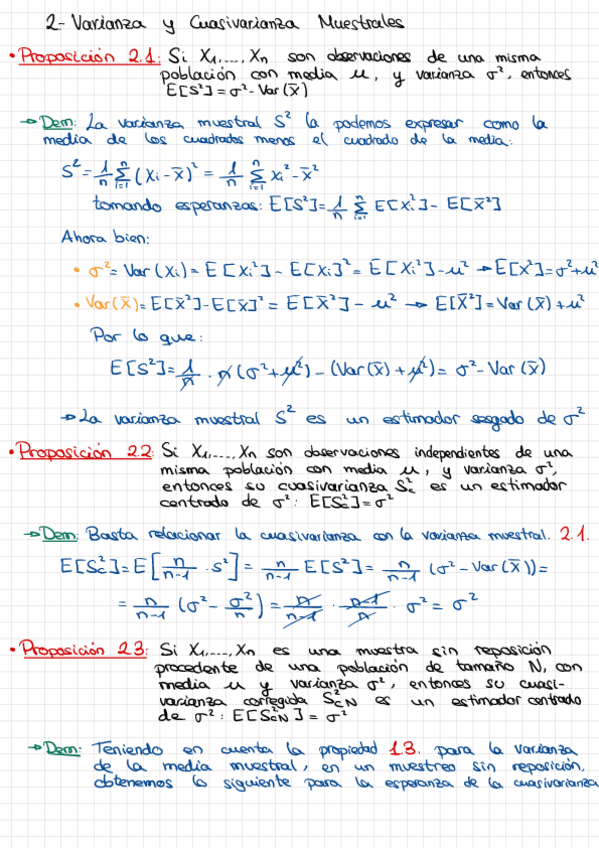 2- Varianza y Cuasivarianza Muestrales
• Proposición 2.1: Si X₁,...,Xn son observaciones de una misma
población con media μ, y varianza σ², entonces
E[S²]=σ²-Var(x̄)
→ Dem: La varianza muestral S² la podemos expresar como la
media de los cuadrados menos el cuadrado de la media:
S²= 1/n Σᵢ₌₁ⁿ (xᵢ-x̄)² = 1/n Σᵢ₌₁ⁿ xᵢ²-x̄²
tomando esperanzas: E[S²]= 1/n Σᵢ₌₁ⁿ E[Xᵢ²]- E[x̄²]
Ahora bien:
• σ²= Var(Xᵢ)= E[Xᵢ²]- E[Xᵢ]²= E[Xᵢ²]-μ² → E[X²]=σ²+μ²
• Var(x̄)= E[x̄²]-E[x̄]² = E[x̄²]- μ² → E[x̄²]=Var(x̄)+μ²
Por lo que:
E[S²]= 1/n · n(σ²+μ²)-(Var(x̄)+μ²)= σ²-Var(x̄)
→ La varianza muestral S² es un estimador sesgado de σ²
• Proposición 2.2: Si X₁,...,Xn son observaciones independientes de una
misma población con media μ, y varianza σ²,
entonces su cuasivarianza Sc² es un estimador
centrado de σ²: E[Sc²]=σ²
→ Dem: Basta relacionar la cuasivarianza con la varianza muestral. 2.1.
E[Sc²]=E[n/(n-1) · S²]= n/(n-1) E[S²]= n/(n-1) (σ²-Var(x̄))=
= n/(n-1) (σ²- σ²/n)= n/(n-1) · (n-1)/n · σ²= σ²
• Proposición 2.3: Si X₁,...,Xn es una muestra sin reposición
procedente de una población de tamaño N, con
media μ y varianza σ², entonces su cuasi-
varianza corregida S²cN es un estimador centrado
de σ²: E[S²cN]= σ²
→ Dem: Teniendo en cuenta la propiedad 1.3. para la varianza
de la media muestral, en un muestreo sin reposición,
obtenemos lo siguiente para la esperanza de la cuasivarianza